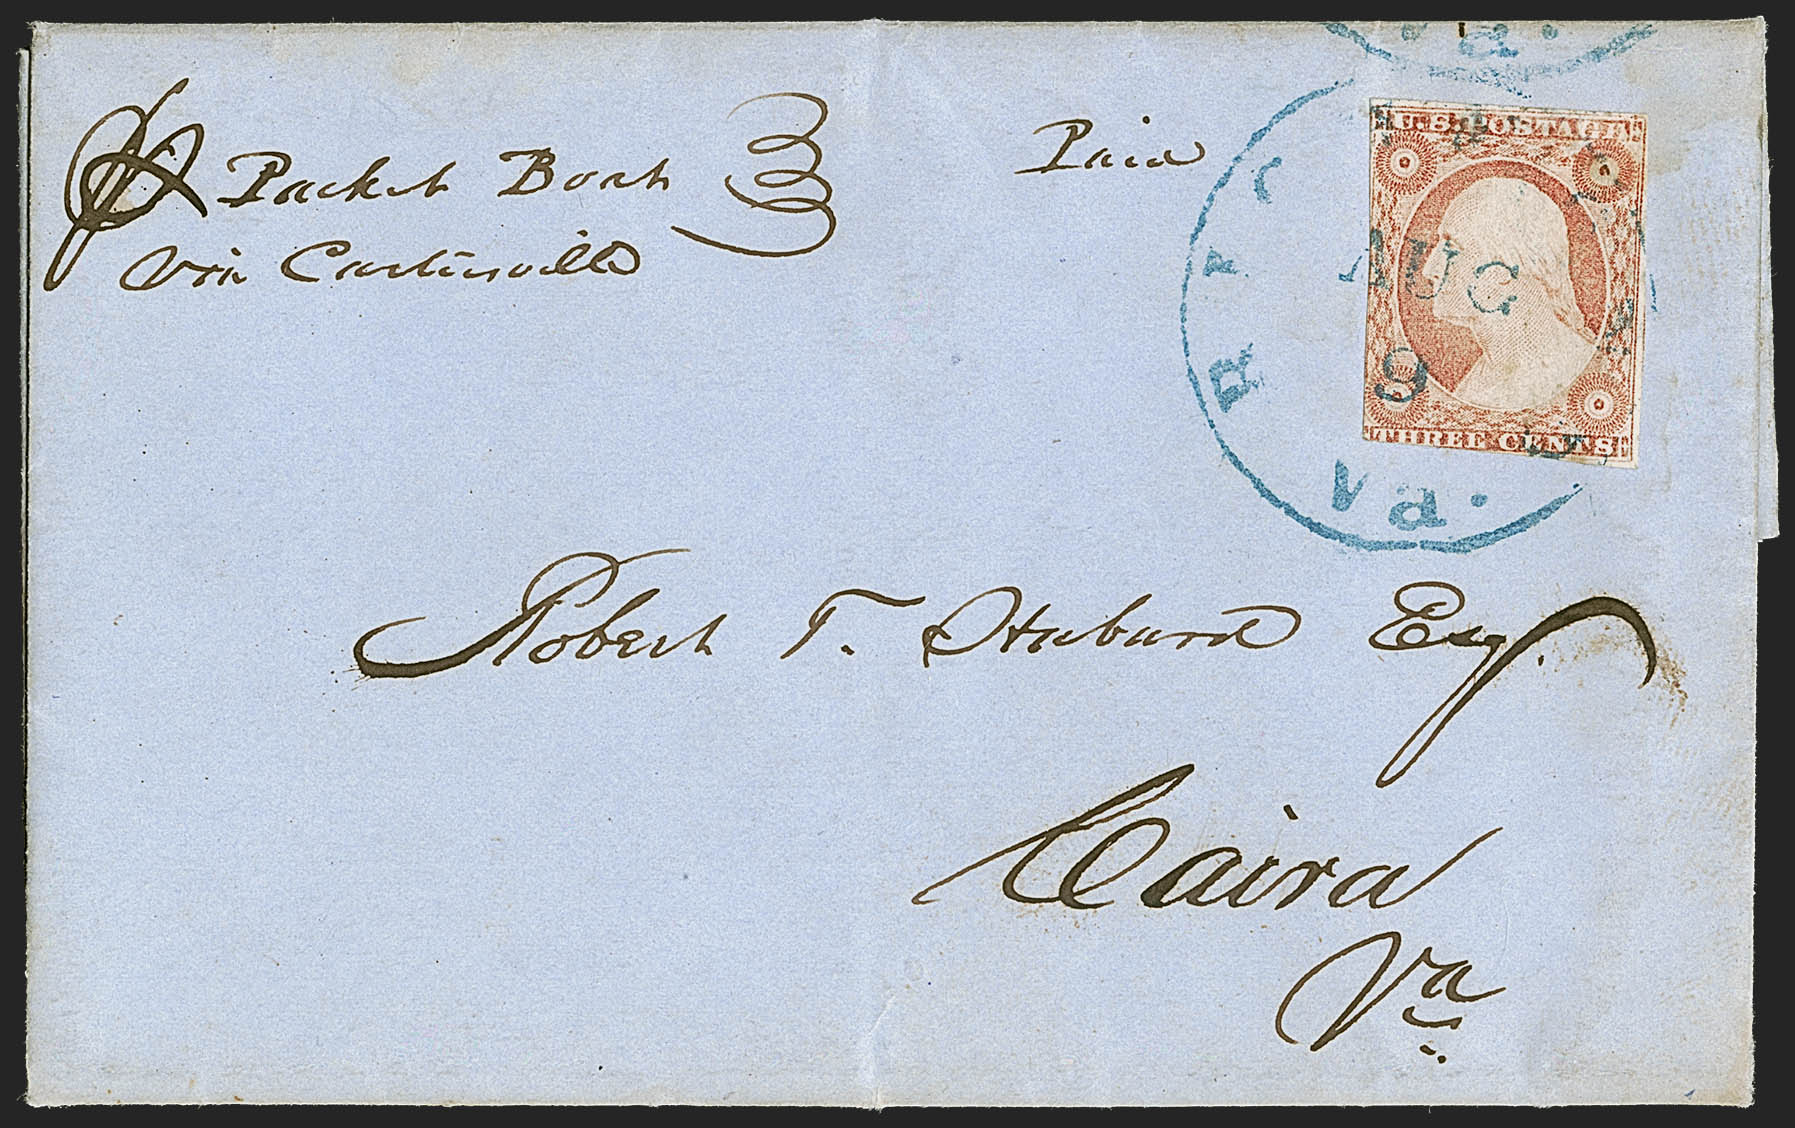 Va.
P Packet Boat
Via Cartersville
Paid
U.S. POSTAGE
RICHMOND
AUG
9
THREE CENTS
5
Va.
Robert T. Hubard Esq.
Caira
Va